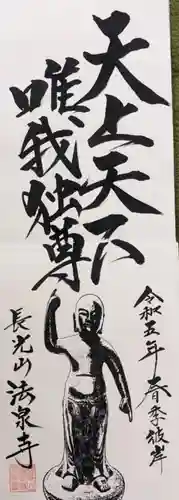 天上天下
唯我独尊
令和五年春季彼岸
長光山法泉寺